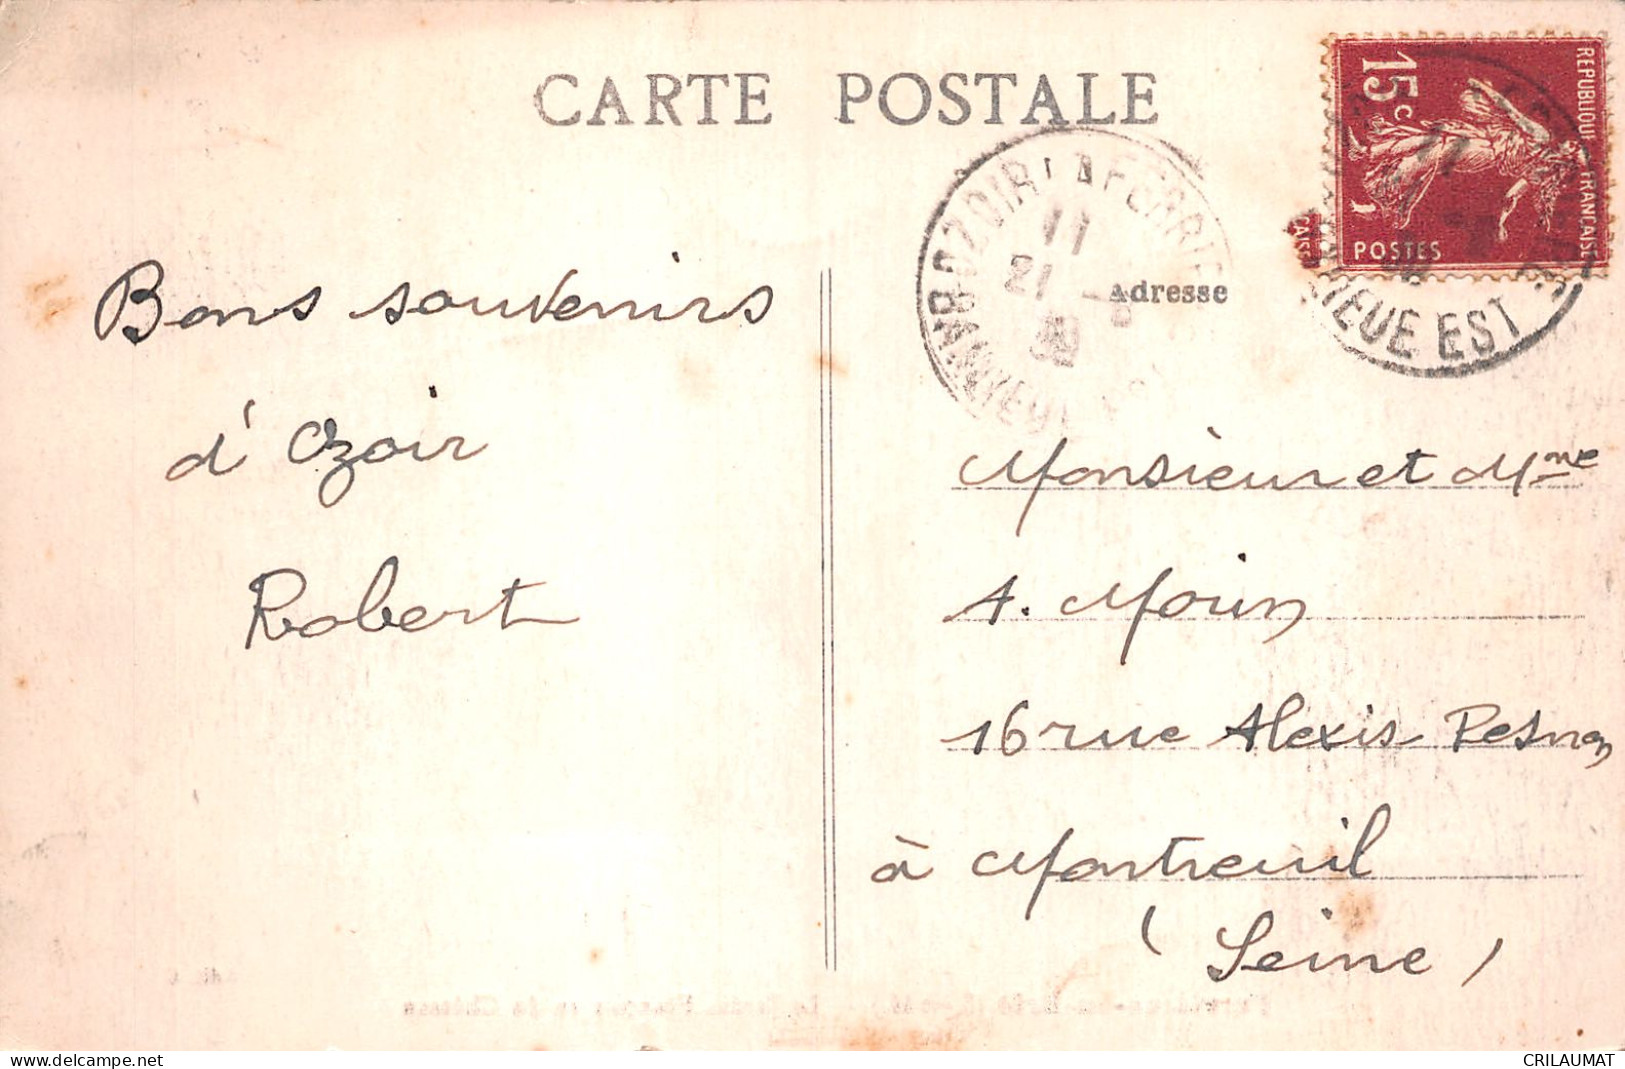 CARTE POSTALE
REPUBLIQUE FRANÇAISE
15c
POSTES
OZOIR LA FERRIE
11
21
BANLIEUE EST
Adresse
Bons souvenirs
d'Ozoir
Robert
Monsieur et Mme
A. Morin
16 rue Alexis Pesnon
à Montreuil
(Seine)
CRILAUMAT